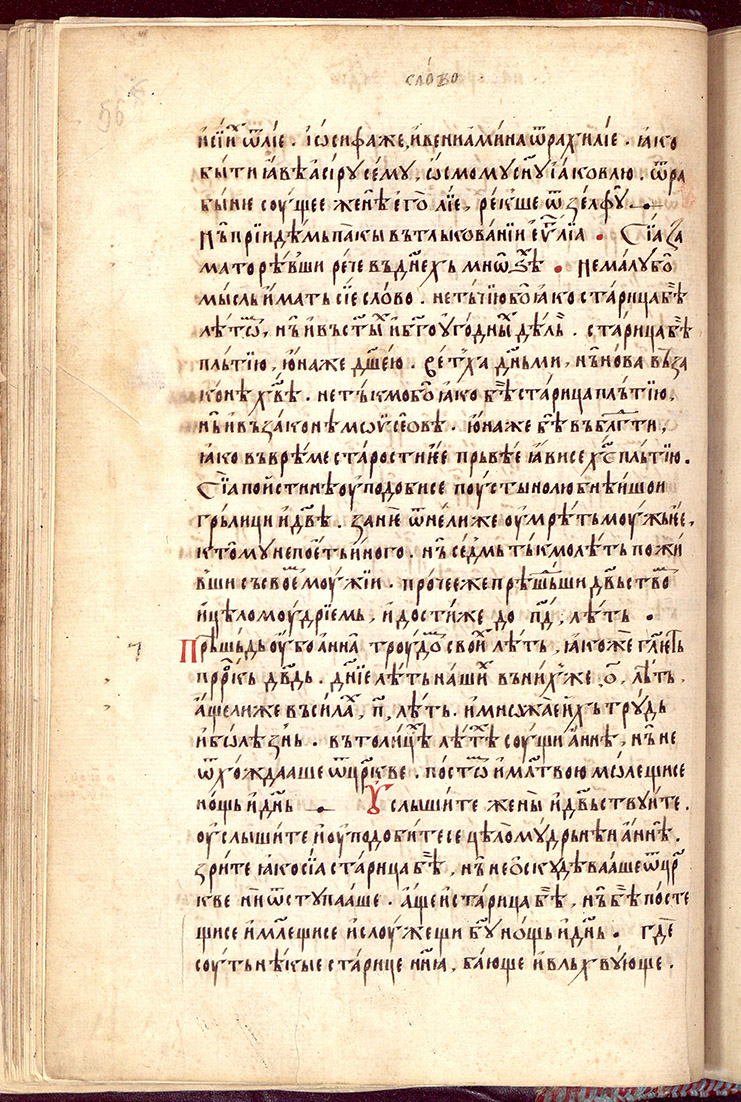 сло́во
56
и҆сїи҆ ѿлі́е . і҆ѡ́сифаже, и҆вениами́на ѿрахи́лїе . ꙗ҆ко
бы́ти ꙗ҆вѣ а҆си́ру се́му , ѡ҆смому сн҃у і҆а́ковлю . ѿра
бы́ніе соу́щее женѣ̀ є҆гѡ̀ лі́е , ре́кше ѿ зе́лфꙋ .
Нъ̀ прїи́дѣмь па́кы въ тлъкова́нїи є҆ѵⷢ҇лїа . Сїа̀ за
маторѣ́вши рече въ дн҃ехъ мнѡ́ѕѣ . Не малу бо̀
мы́сль и҆́мать сїе сло́во . не тъ́чїю бо̀ ꙗ҆ко ста́рица бѣ̀
лѣ́тѡⷨ , нъ̀ и҆ въ ст҃ыⷯ и҆ бг҃оуго́дныⷯ дѣ́лѣⷯ . ста́рица бѣ̀
плъ́тїю , ю҆́на же дш҃ею . ве́тха дн҃ьми , нъ̀ но́ва въ за
ко́нѣ хв҃ѣ . не тъ́кмо бо̀ ꙗ҆ко бѣ̀ ста́рица плъ́тїю ,
нъ̀ и҆ въ зако́нѣ мѡѵ҆сеѡвѣ . ю҆́на же бѣ̀ въ блгⷣти ,
ꙗ҆ко въ врѣ́ме ста́рости є҆́е прьвѣ́е ꙗ҆ви се хс҃ плъ́тїю .
Сїа̀ пои́стинѣ оу҆подо́би се поу́стынолюбнѣ́ишои
грь́лици и҆ дв҃ѣ . занѐ ѿне́лиже оу҆мрѣ́ть моу́жь є҆е ,
ктомꙋ не пое́ть и҆́ного . нъ̀ се́дмь тъ́кмо лѣ́ть пожи́
вши съ свои́мь моу́жїи . про́чее же прѣшⷣьши дв҃ьствоⷨ
и҆ цѣломоу́дрїемь , и҆ дости́же до пд҃ , лѣ́ть .
Прѣшⷣьдь оу҆бо а҆нна̀ троу́дѡⷨ свои́ⷯ лѣ́ть , ꙗ҆коже гл҃еть
прⷪ҇ркь дв҃дь . дн҃їе лѣ́ть на́шиⷯ въ ни́хже , о҃ , лѣ́ть .
а҆́ще ли же въ си́лаⷯ , п҃ , лѣ́ть . и҆ мнѡ́жае и҆́хь трꙋ́дь
и҆ болѣ́знь . въ толи́цѣⷯ лѣ́тѣⷯ соу́щи а҆́ннѣ , нъ̀ не
ѿхожда́аше ѿ цр҃кве . посто́ⷨ и҆ мл҃твою мѡ́лещи се
но́щь и҆ дн҃ь . Услы́шите жены̀ и҆ дв҃ьствꙋ́ите .
оу҆слы́шите и҆ оу҆подо́бите се цѣломꙋ́дрьнѣи а҆́ннѣ .
зри́те ꙗ҆ко сїа̀ ста́рица бѣ̀ , нъ̀ не ѡ҆скꙋдѣва́аше ѿ цр҃
кве ни ѿступа́аше . а҆́ще и ста́рица бѣ̀ , нъ̀ бѣ̀ по́сте
щи се и҆ мл҃ещи се и҆ слоу́жещи бг҃у но́щь и҆ дн҃ь . гдѐ
соу́ть нѣ́кые ста́рице ни҃ꙗ , ба́юще и҆ влъхвꙋ́юще .